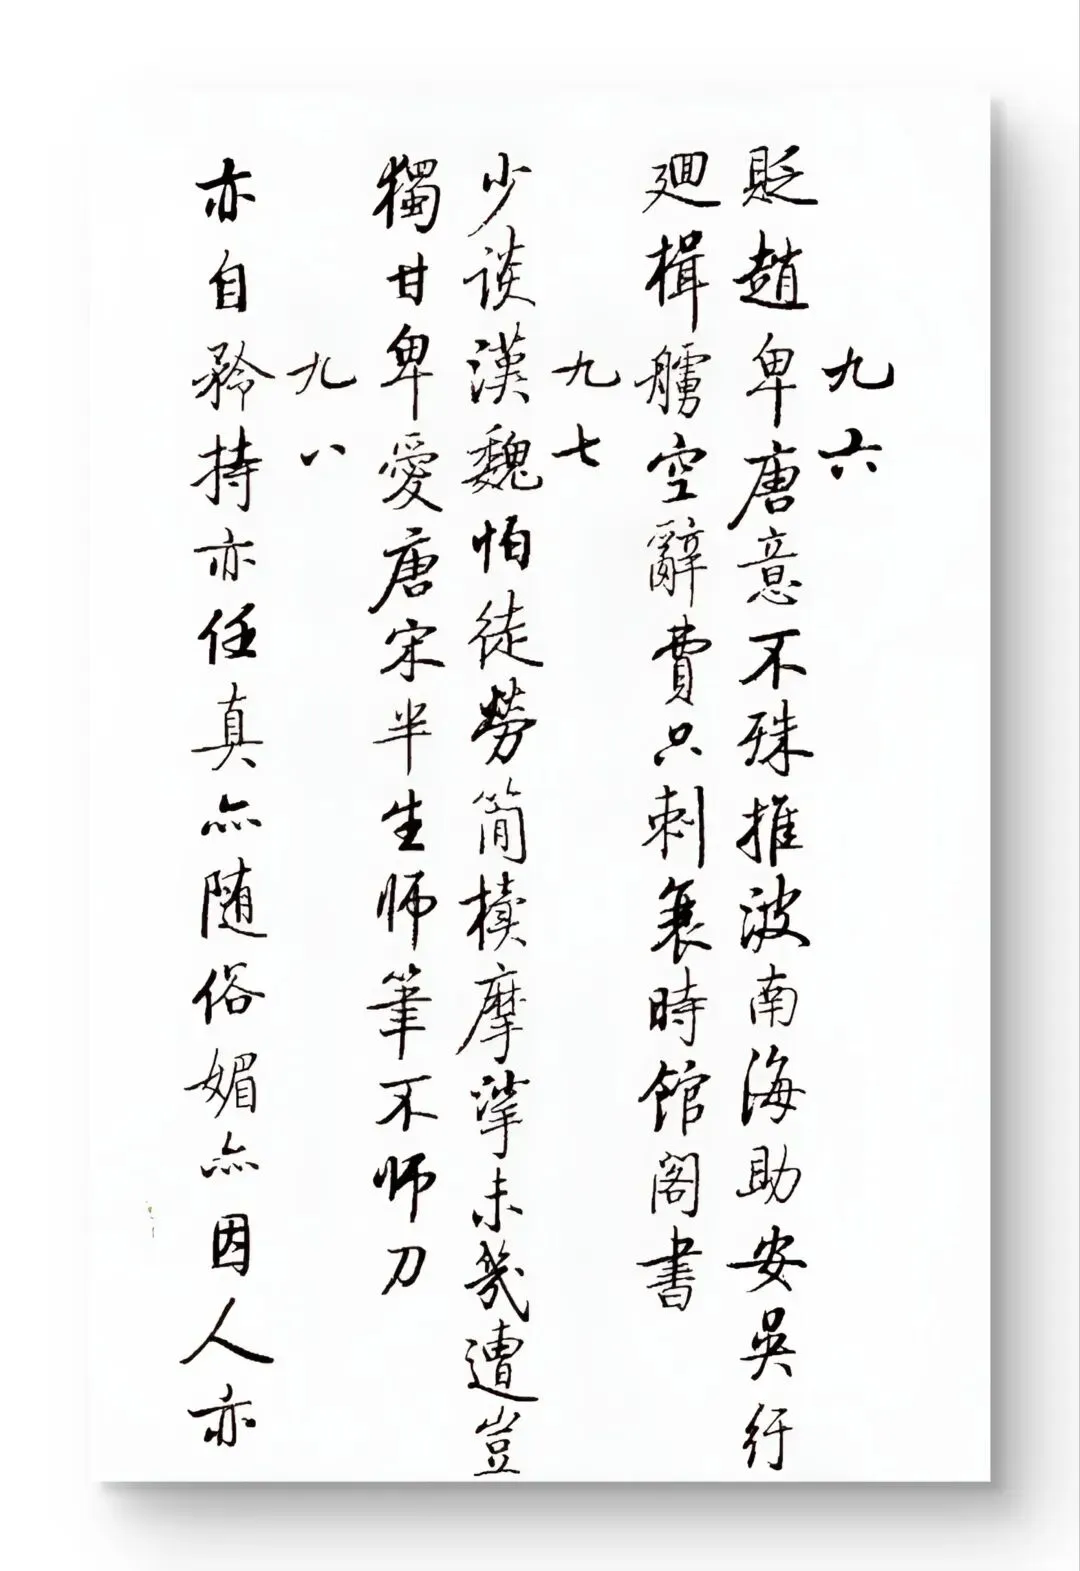 九六
貶趙卑唐意不殊推波南海助安吳行
廻楫艣空辭費只刺衰時館閣書
九七
少談漢魏怕徒勞簡牘摩挲未幾遭豈
獨甘卑愛唐宋半生师筆不师刀
九八
亦自矜持亦任真亦随俗媚亦因人亦